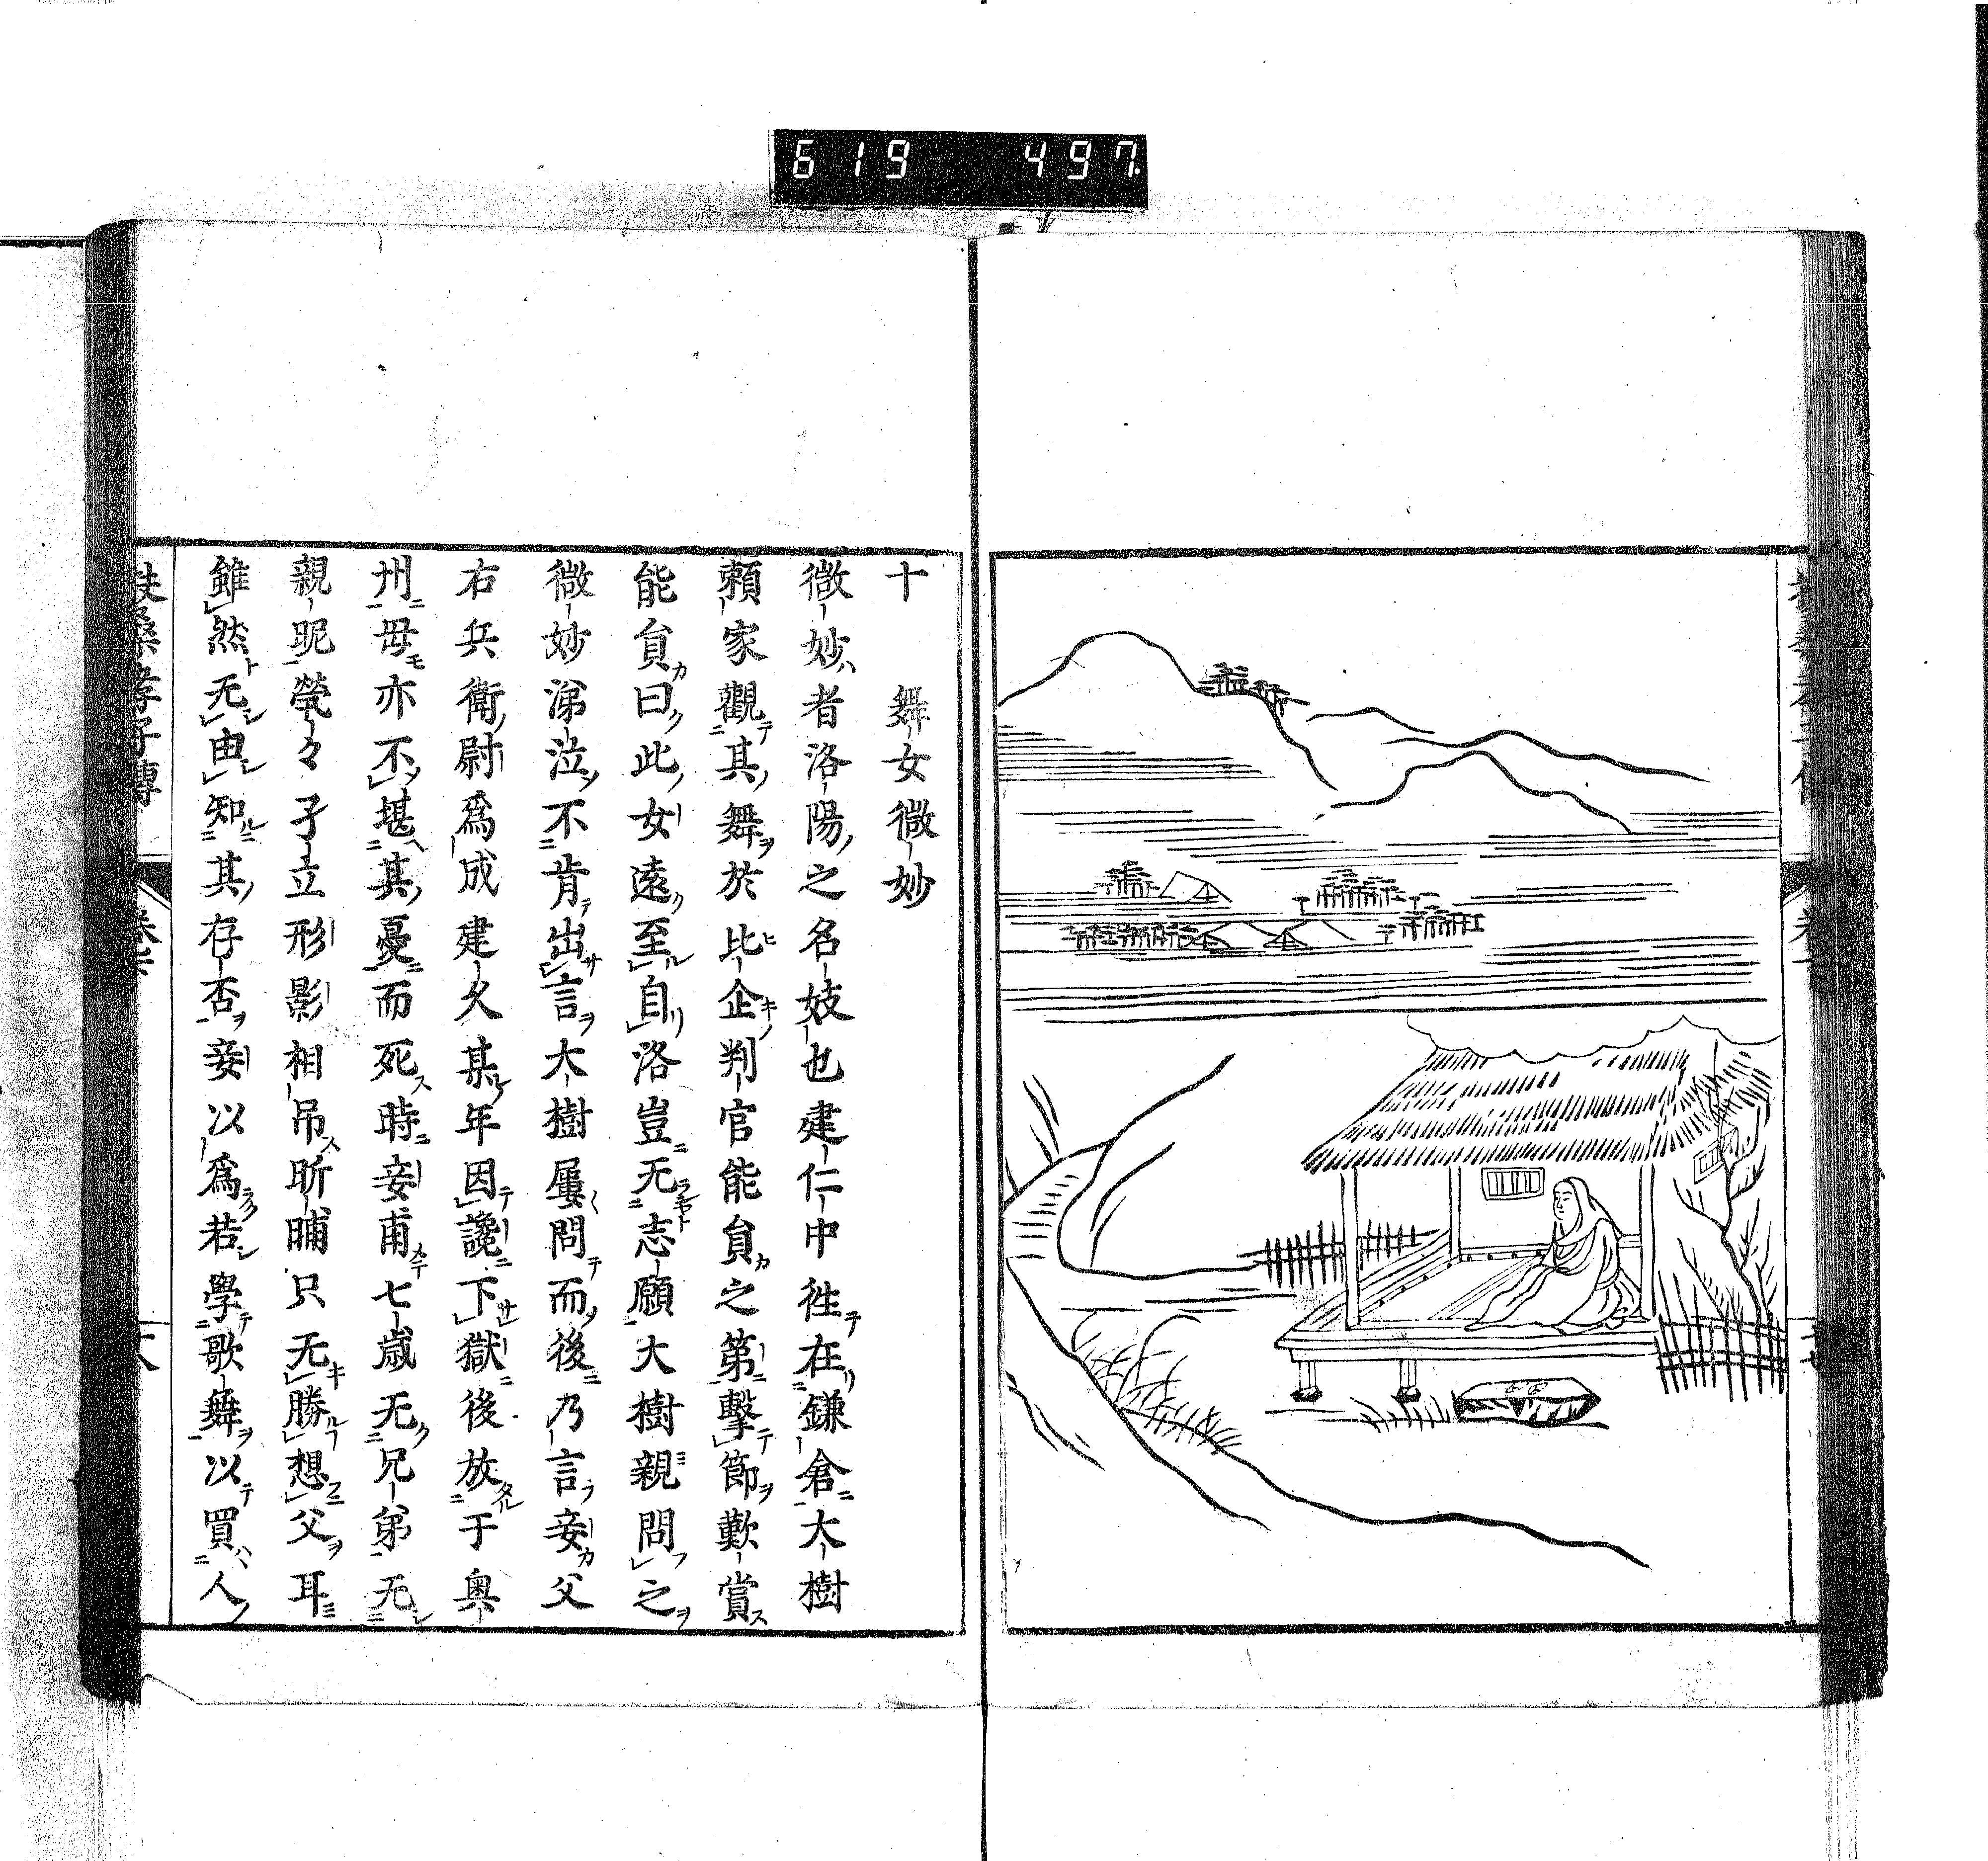 619 497
十 舞女微妙
微妙者洛陽之名妓也建仁中徃在鎌倉大樹
頼家觀其舞於比企判官能貟之第擊節歎賞
能貟曰此女遠至自洛豈无志願大樹親問之
微妙涕泣不肯出言大樹屢問而後乃言妾父
右兵衛尉爲成建久某年因讒下獄後放于奥
州母亦不堪其憂而死時妾甫七歳无兄弟无
親昵煢々孑立形影相吊昕晡只无勝想父耳
雖然无由知其存否妾以爲若學歌舞以買人
扶桑孝子傳 卷